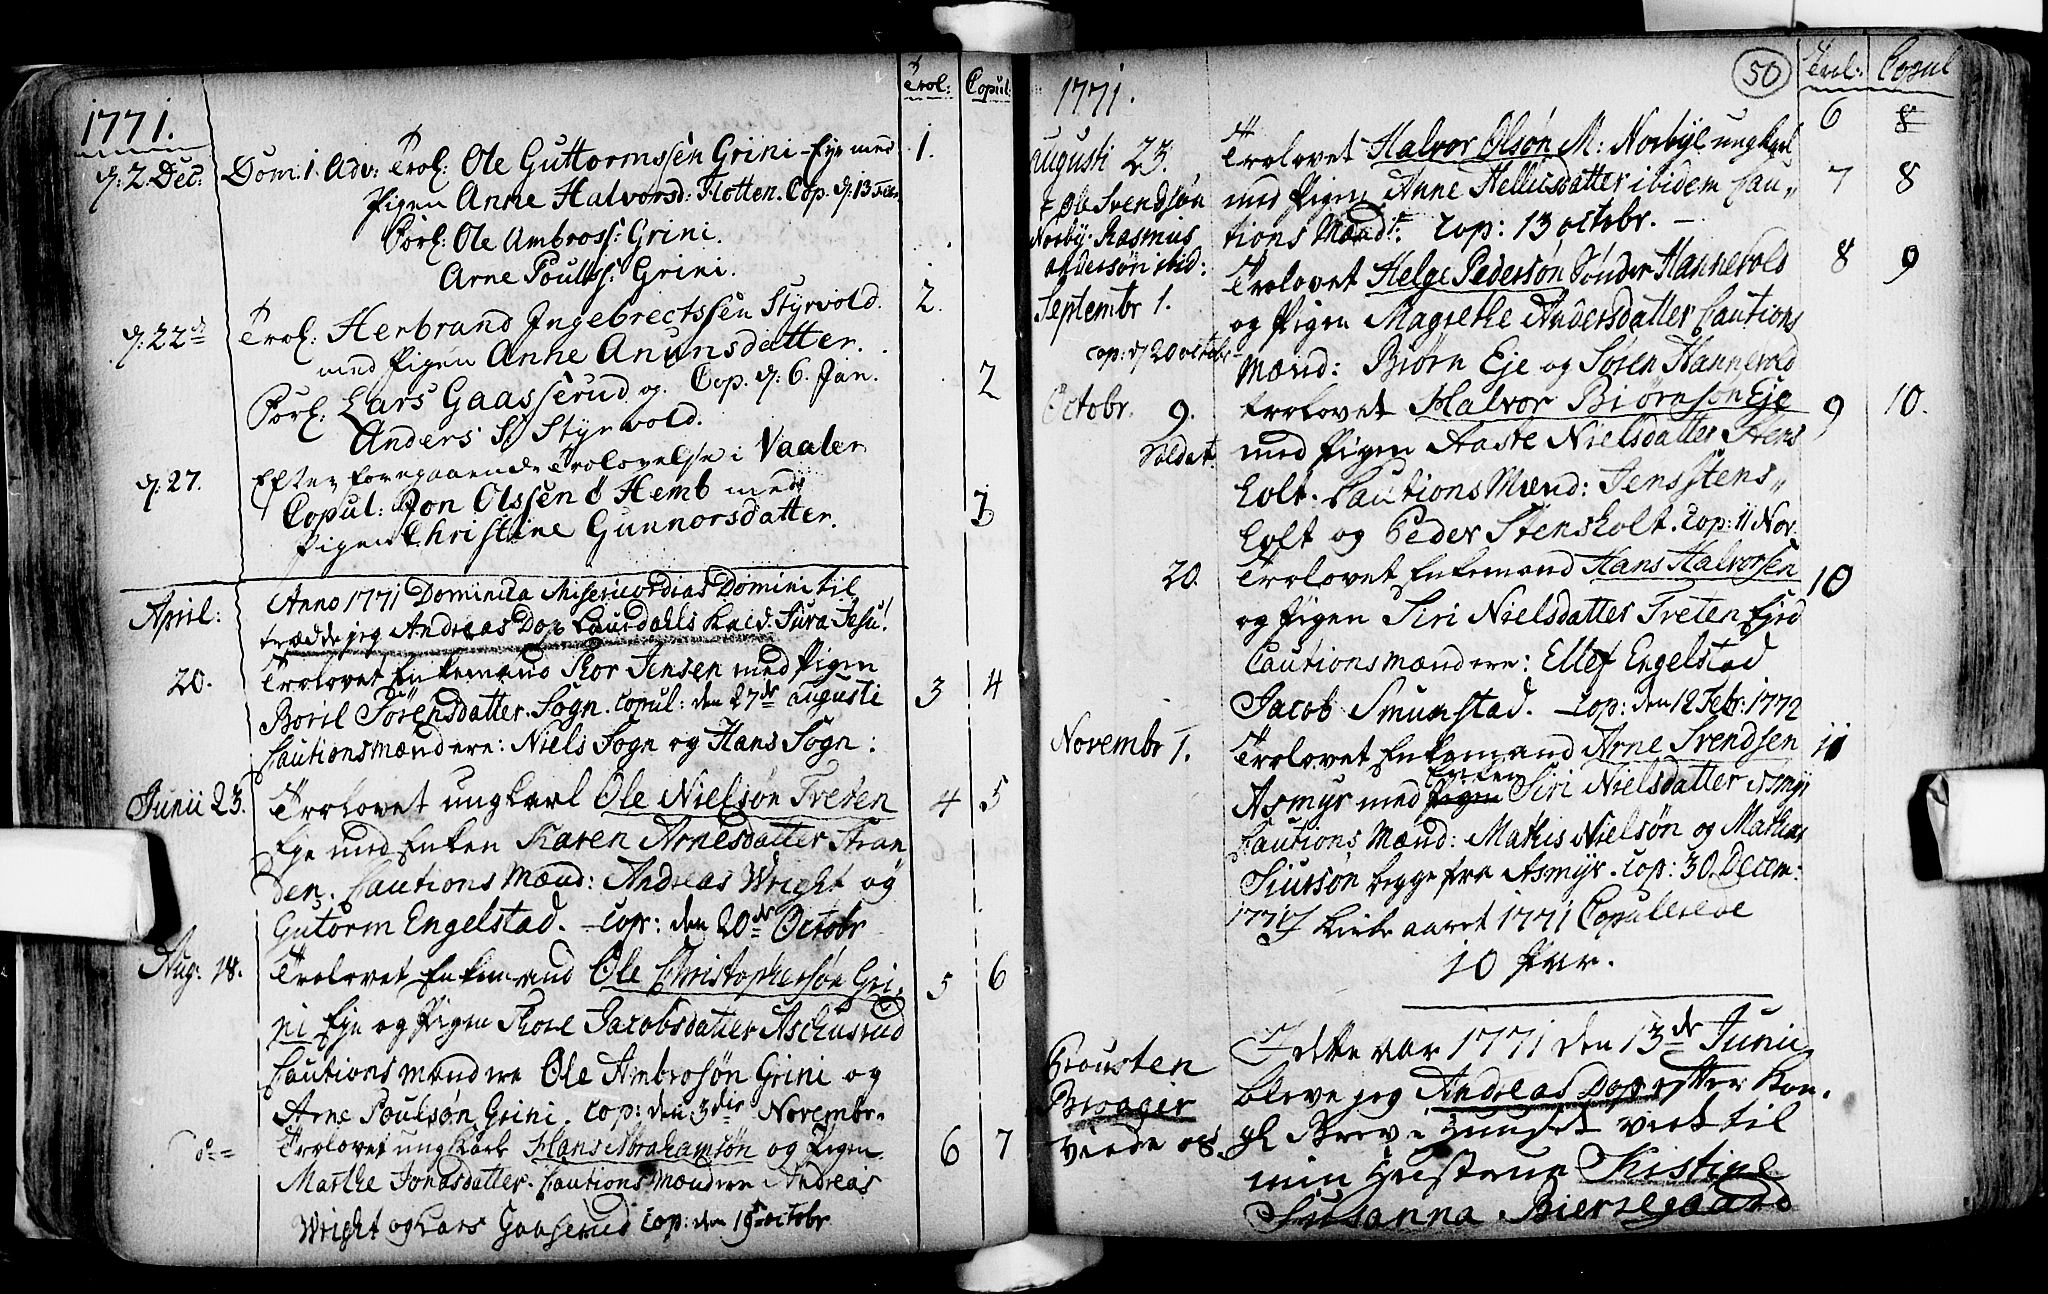 1771.
Trol: Copul:
d: 2. Dec: Dom: 1. Adv: Trol: Ole Guttormssen Grini-Eye med 1.
Pigen Anne Halvorsd: Flotten. Cop. d: 13 Febr.
Forl: Ole Ambross: Grini.
Arne Poulss: Grini.
d: 22de Trol: Herbrand Ingebrectssen Styrvold. 2.
med Pigen Anne Anunsdatter.
Forl: Lars Gaasserud og Cop. d: 6. Jan. 2
Anders S: Styrvold.
d: 27. Efter foregaaende Trolovelse i Vaaler
Copul: Jon Olssen ø Hemb med 3
Pigen Christine Gunnorsdatter.
April: Anno 1771 Dominica Misericordias Domini til
trædde jeg Andreas Dop Lausdahls kald. Jura Jesu!
20. Trolovet Enkemand Thor Jensen med Pigen
Boril Sørensdatter. Sogn. Copul: den 27de Augusti 3 4
Cautionsmændere: Niels Sogn og Hans Sogn:
Junii 23. Trolovet ungkarl Ole Nielsøn Treten 4 5
Eje med Enken Karen Arnesdatter Stran
den. Cautions Mænd: Andreas Wright og
Gutorm Engelstad. - Cop: den 20de Octobr
Aug: 18. Trolovet Enkemand Ole Christophersøn Gri- 5 6
ni Eje og Pigen Thore Jacobsdatter Aschusrud
Cautionsmændere Ole Ambrosøn Grini og
Arne Poulsøn Grini. Cop: den 3die Novembr.
do = Trolovet ungkarl Hans Abrahamsøn og Pigen 6 7
Marthe Jonasdatter. Cautions Mændere Andreas
Wright og Lars Gaaserud Cop: den 19 Octobr

1771. 50 Trol: Copul
6 8
Augusti 23. Trolovet Halvor Olsøn M: Norbye ungkarl
† Ole Svendsøn med Pigen Anne Hellesdatter ibidem Cau- 7 8
Norby. Rasmus tions Mænd †: Cop: 13 octobr. -
Andersøn ibid: Trolovet Helge Pedersøn Sønder Hannevold 8 9
Septembr 1. og Pigen Magrethe Andersdatter Cautions
cop: d 20 octobr Mænd: Biørn Eje og Søren Hannevold
Octobr. 9. Trolovet Halvor Biørnsøn Eje 9 10.
Soldat. med Pigen Aaste Nielsdatter Stens
holt. Cautions Mænd: Jens Stens
holt og Peder Stensholt. Cop: 11 Nov.
20. Trolovet Enkemand Hans Halvorsen 10
og Pigen Siri Nielsdatter Treten Ejed
Cautionsmændere: Ellef Engelstad
Jacob Smunstad. - Cop: den 12 Febr: 1772
Novembr 1. Trolovet Enkemand Arne Svendsen 11
Enken
Asmyr med Pigen Siri Nielsdatter Asmyr
Cautions Mænd: Mathis Nielsøn og Mathias
Siursøn begge fra Asmyr. Cop: 30. Decem:
1771 I Kirke aaret 1771 Copulerede
10 Par.
I dette aar 1771 den 13de Junii
Provsten bleve jeg Andreas Dop efter Kon-
Besager gl. Brev i Hunset viet til
viede os. min Hustrue Kistine
Susanna Bierregaard